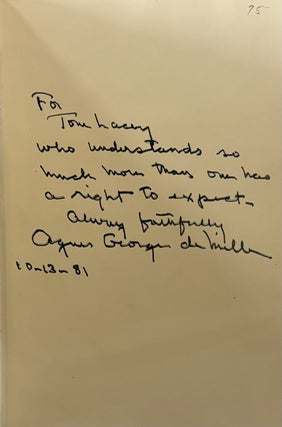 75-
For
Tom Lacey
who understands so
much more than one has
a right to expect–
Always faithfully
Agnes George de Mille
10-13-81